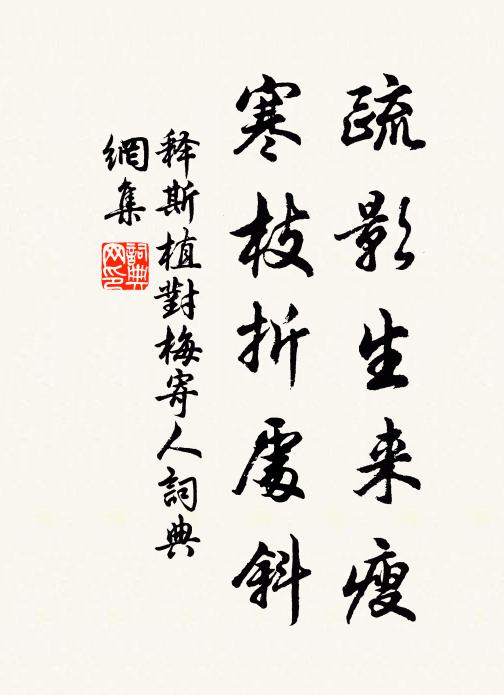 疏影生来瘦
寒枝折處斜
释斯植對梅寄人詞典
網集
詞典
网印